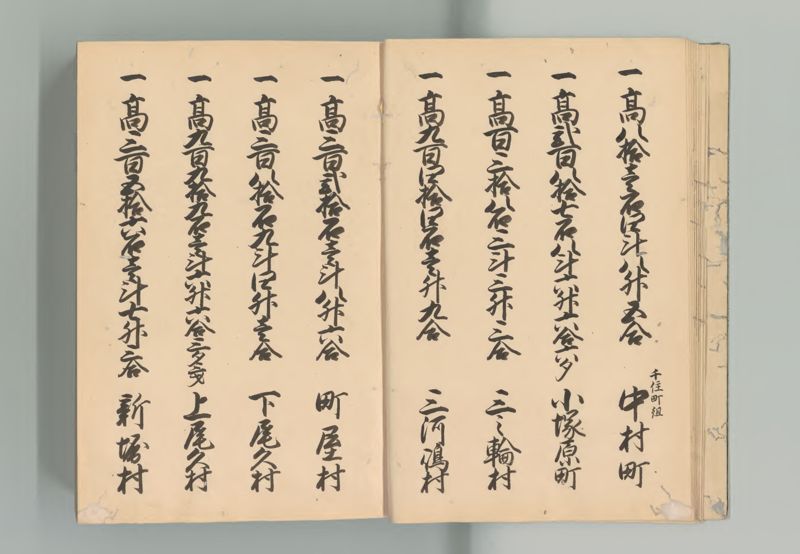 一 高八拾壱石四斗八升五合 千住町組 中村町
一 高弐百八拾七石八斗六升六合六夕 小塚原町
一 高百三拾八石三斗三升三合 三之輪村
一 高九百四拾四石壱升九合 三河嶋村
一 高三百弐拾石壱斗八升六合 町屋村
一 高三百八拾石九斗四升壱合 下尾久村
一 高九百九拾九石三斗六升六合三夕 上尾久村
一 高三百五拾六石壱斗七升三合 新堀村